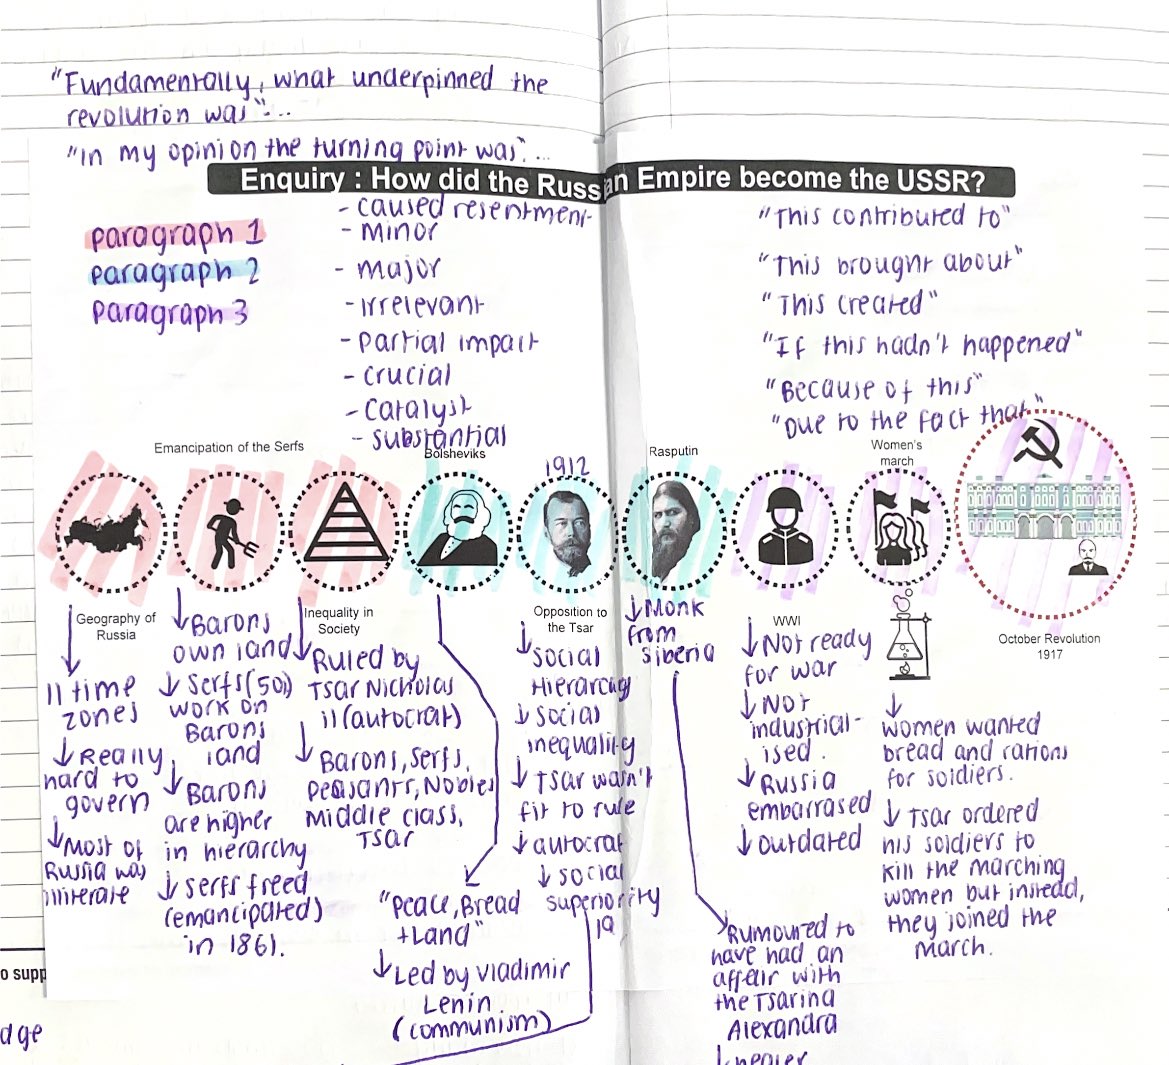 "Fundamentally, what underpinned the
revolution was"...
"In my opinion the turning point was"...
Enquiry : How did the Russian Empire become the USSR?
paragraph 1
paragraph 2
paragraph 3
- caused resentment
- minor
- major
- irrelevant
- partial impact
- crucial
- catalyst
- substantial
"This contributed to"
"This brought about"
"This created"
"If this hadn't happened"
"Because of this"
"Due to the fact that"
Emancipation of the Serfs
Bolsheviks
1912
Rasputin
Women's
march
Geography of
Russia
↓ 11 time
zones
↓ Really
hard to
govern
↓ Most of
Russia was
illiterate
↓ Barons
own land
↓ Serfs(50%)
work on
Barons
land
↓ Barons
are higher
in hierarchy
↓ serfs freed
(emancipated)
in 1861.
Inequality in
Society
↓ Ruled by
Tsar Nicholas
II (autocrat)
↓ Barons, Serfs,
peasants, Nobles
Middle class,
Tsar
"Peace, Bread
+Land"
↓ Led by Vladimir
Lenin
(communism)
Opposition to
the Tsar
↓ social
Hierarchy
↓ social
inequality
↓ Tsar wasn't
fit to rule
↓ autocrat
↓ social
superiority
19
↓ Monk
from
Siberia
↓ Rumoured to
have had an
affair with
the Tsarina
Alexandra
↓ healer
WWI
↓ Not ready
for war
↓ Not
industrial-
ised.
↓ Russia
embarrased
↓ outdated
↓
women wanted
bread and rations
for soldiers.
↓ Tsar ordered
his soldiers to
kill the marching
women but instead,
they joined the
march.
October Revolution
1917
o supp
dge